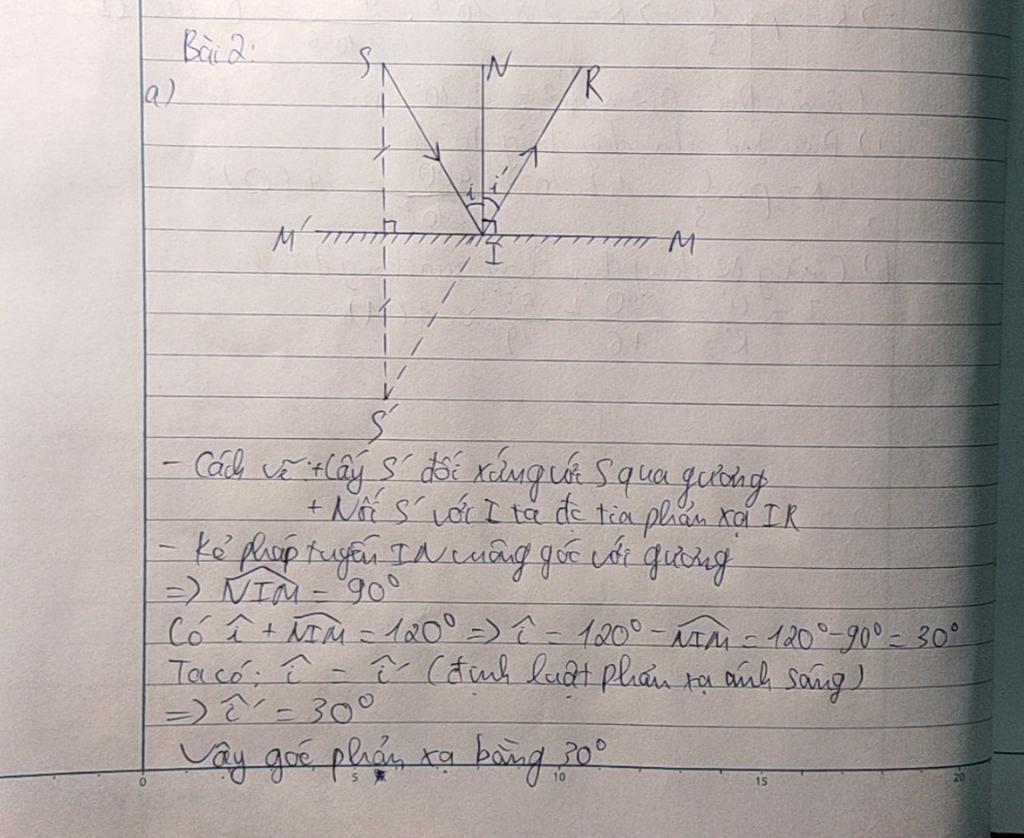 Bài 2:
a)
S N R
i i'
M' I M
S'
- Cách vẽ: + Lấy S' đối xứng với S qua gương
+ Nối S' với I ta đc tia phản xạ IR
- Kẻ pháp tuyến IN vuông góc với gương
=> NIM = 90°
Có î + NIM = 120° => î = 120° - NIM = 120° - 90° = 30°
Ta có: î = î' (định luật phản xạ ánh sáng)
=> î' = 30°
Vậy góc phản xạ bằng 30°
0 5 10 15 20